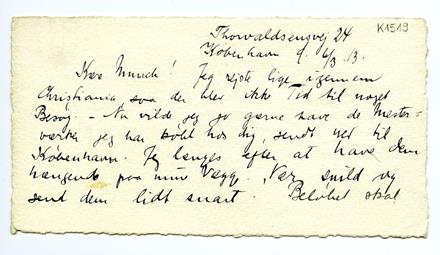 Thorvaldsensvej 24
K1519
København d. 6/3 13.
Kære Munch! Jeg rejste lige igennem
Christiania saa der blev ikke Tid til noget
Besøg. – Nu vilde jeg jo gærne have de Mester-
værker jeg har købt hos dig, sendt ned til
København. Jeg længes efter at have dem
hængende paa min Væg. Vær snild og
send dem lidt snart. Beløbet skal